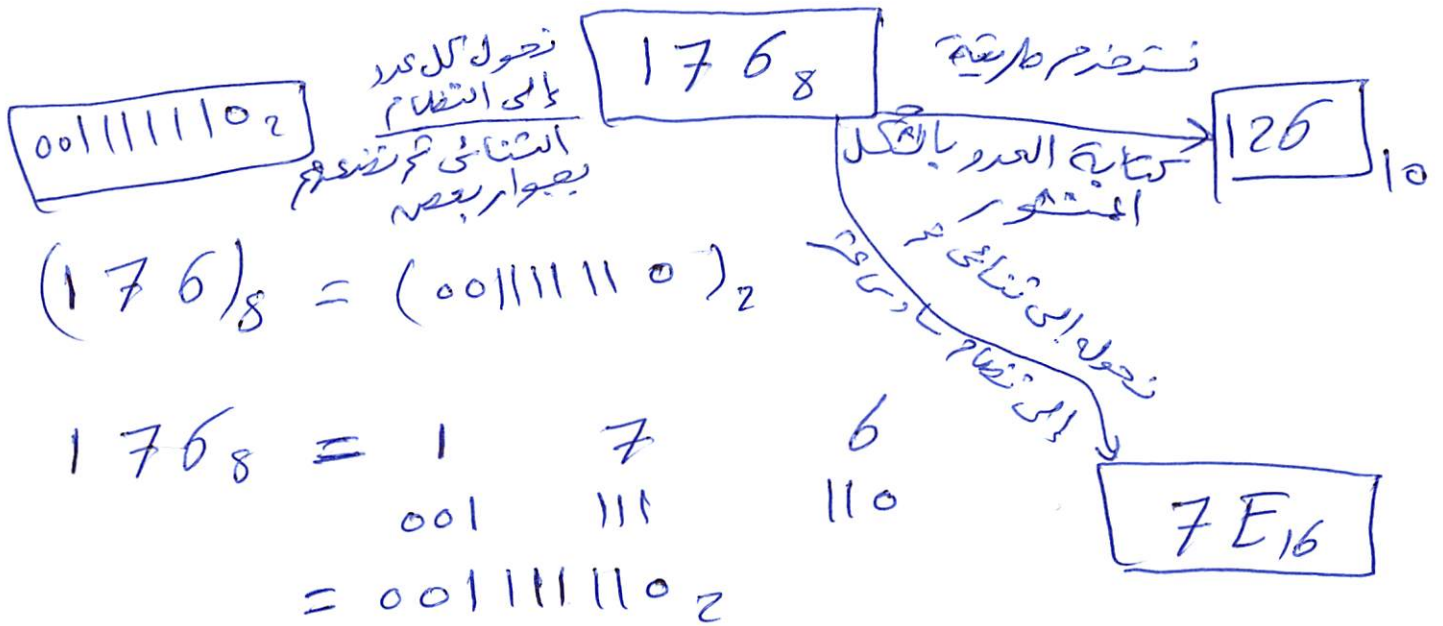 176₈
نحول كل عدد
إلى النظام
الثنائي ثم نضعهم
بجوار بعض
001111110₂
نستخدم طريقة
كتابة العدد بالشكل
المنشور
126₁₀
نحول إلى ثنائي ثم
إلى نظام سادس عشر
7E₁₆
(176)₈ = (001111110)₂
176₈ = 1 7 6
001 111 110
= 001111110₂